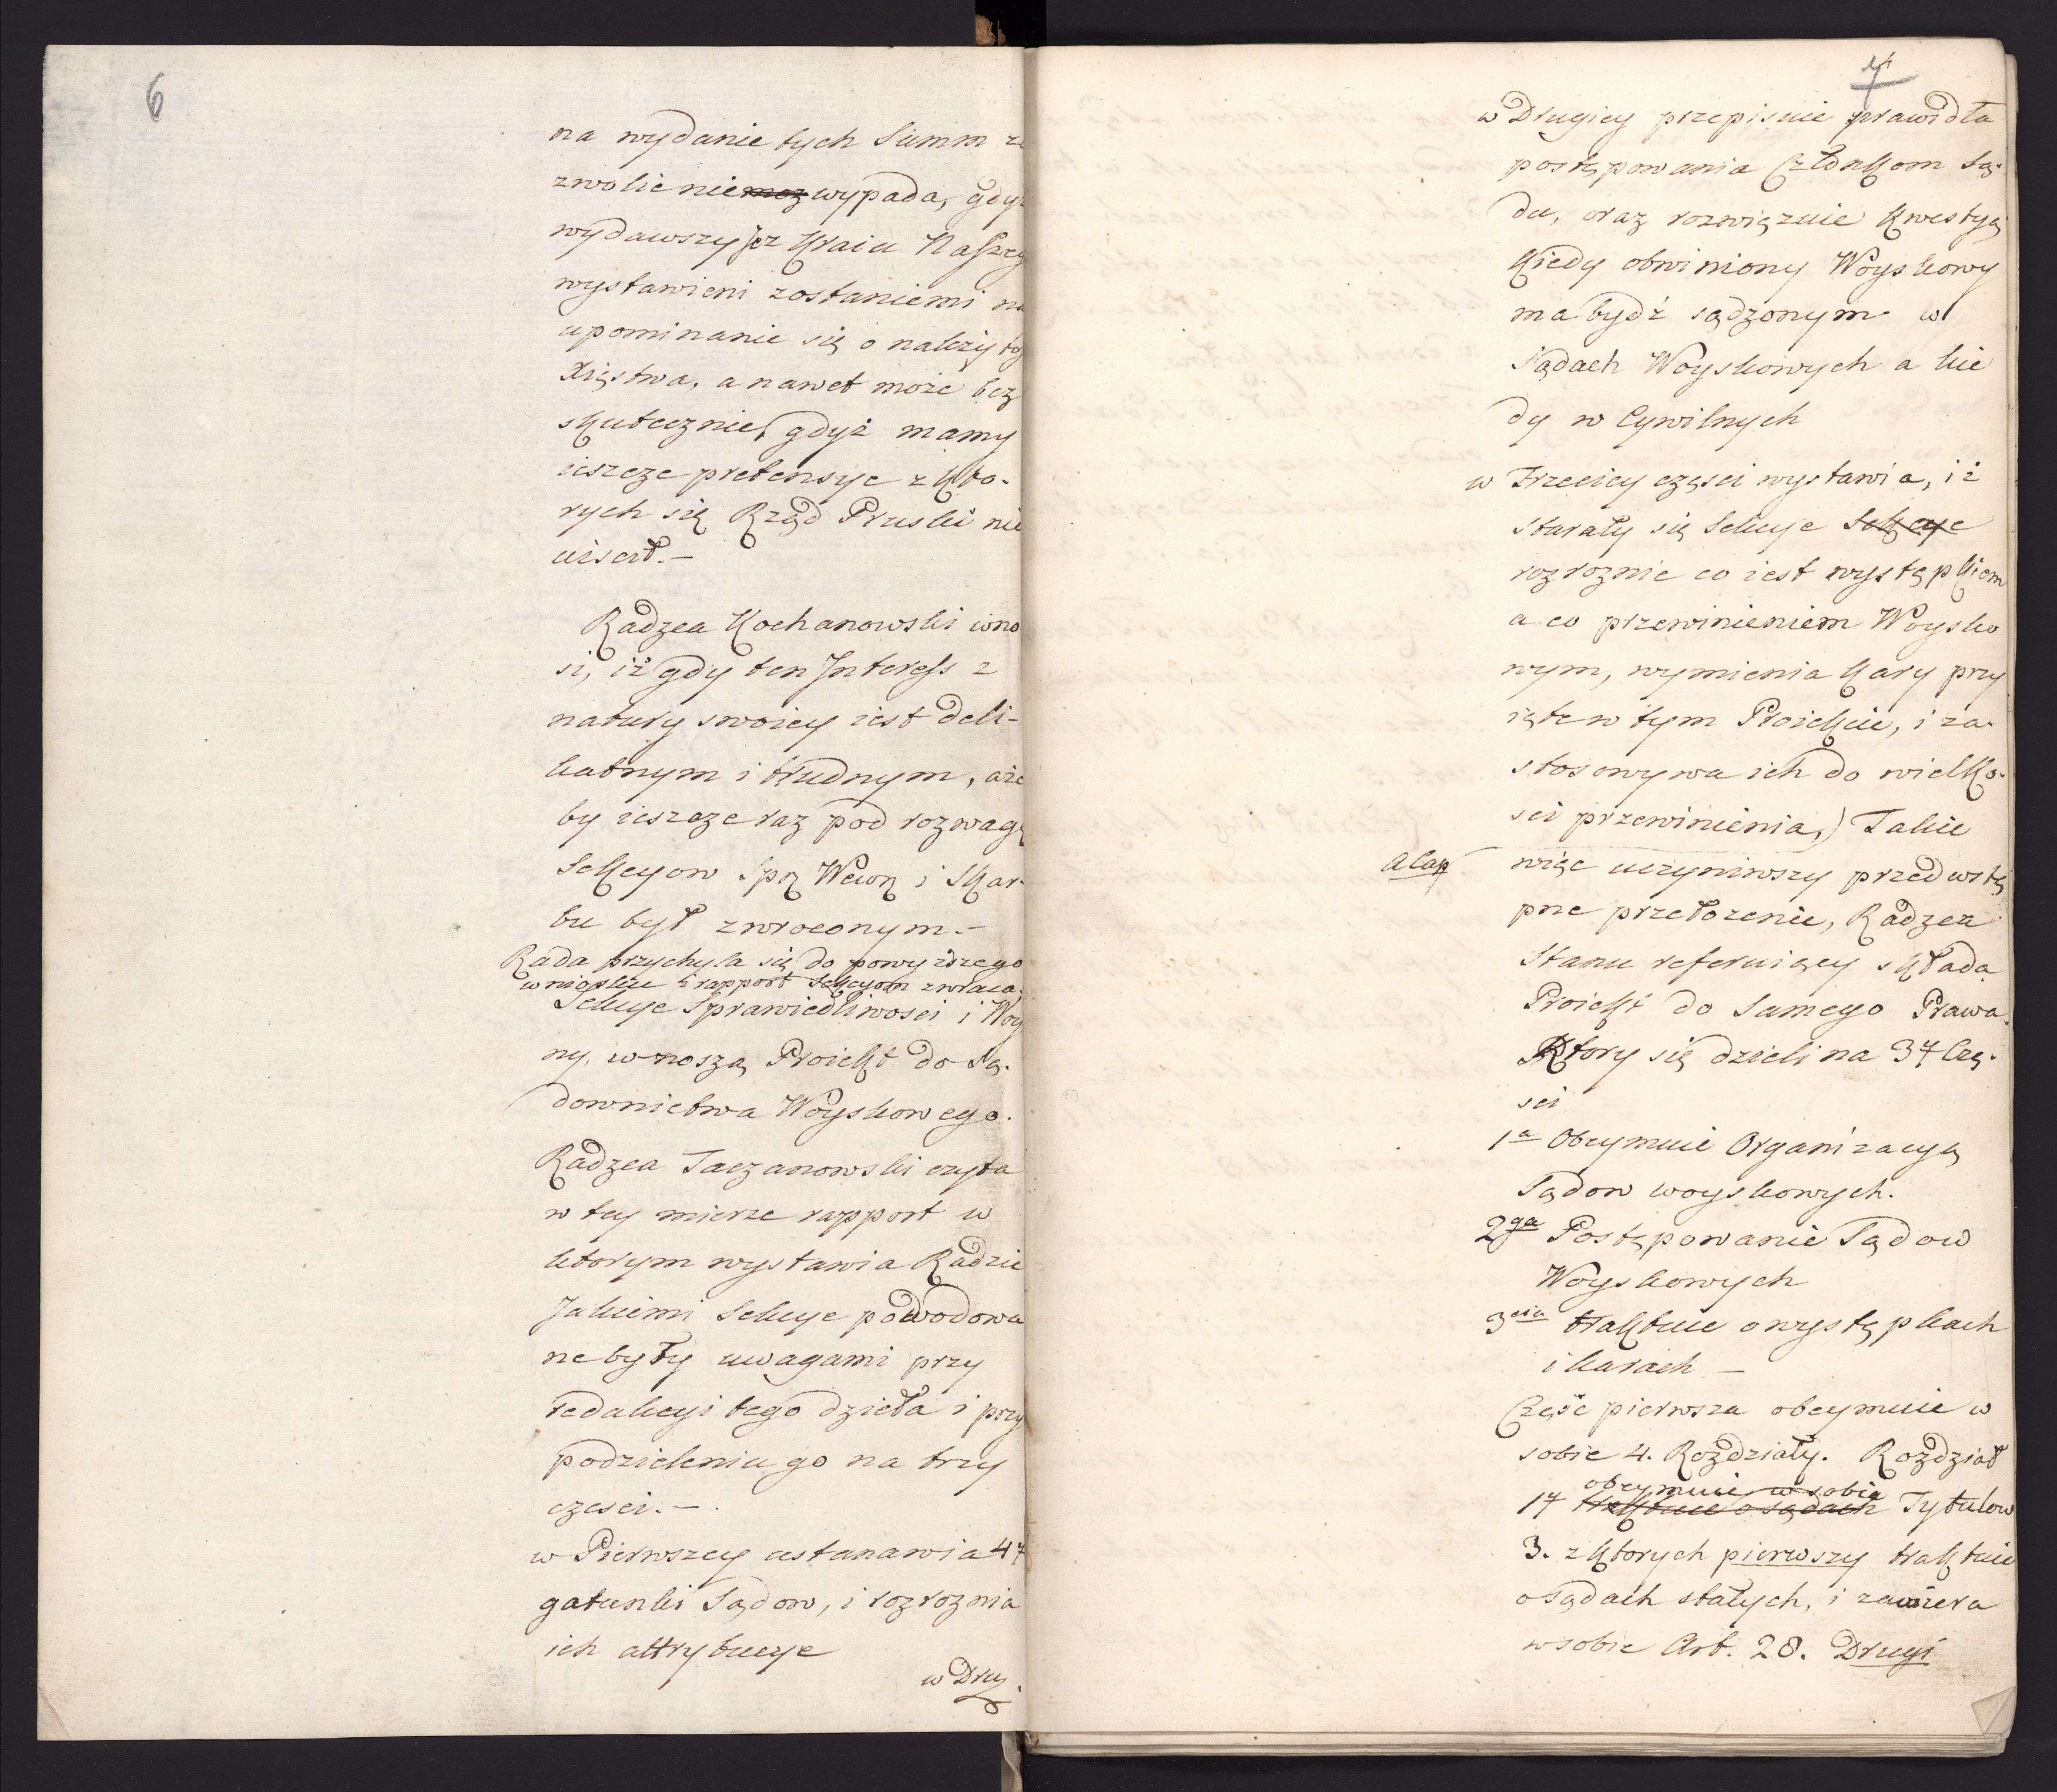 6
na wydanie tych Summ ze
zwolic nie moz wypada, gdyż
wydawszy je z Kraiu Naszego
wystawieni zostaniemi na
upominanie się o należytoś
Xięstwa, a nawet może bez
skutecznie, gdyż mamy
ieszcze pretensye z któ-
rych się Rząd Pruski nie
uiscił.-
Radzca Kochanowski wno
si, iż gdy ten Interess z
natury swoiey iest deli-
katnym i trudnym, aże
by ieszcze raz pod rozwagę
Sekcyow Spr Wewn i Skar-
bu był zwroconym.-
Rada przychyla się do powyższego
wniosku i rapport Sekcyom zwraca.
Sekcye Sprawiedliwosci i Woy
ny, wnoszą Proiekt do Są-
downictwa Woyskowego.
Radzca Taczanowski czyta
w tey mierze rapport w
ktorym wystawia Radzie
Jakiemi Sekcye powodowa
ne były uwagami przy
redakcyi tego dzieła i przy
podzieleniu go na trzy
czesci.-
w Pierwszey ustanawia 4
gatunki Sądow, i rozroznia
ich attrybucye
w Dru
7
w Drugiey przepisuie prawidła
postępowania Członkom Są-
du, oraz rozwięzuie kwestyą
kiedy obwiniony Woyskowy
ma bydź sądzonym w
Sądach Woyskowych a kie
dy w Cywilnych
w Trzeciey częsci wystawia, iż
starały się Sekcye Sekcye
rozroznic co iest występkiem
a co przewinieniem Woysko
wym, wymienia kary przy
ięte w tym Proiekcie, i za-
stosowywa ich do wielko-
sci przewinienia,) Takie
a Cap
więc uczyniwszy przedwstę
pne przełozenie, Radzca
Stanu referuiący składa
Proiekt do Samego Prawa.
Ktory się dzieli na 3 Czę-
sci
1a Obeymuie Organizacyą
Sądow woyskowych.
2ga Postępowanie Sądow
Woyskowych
3cia traktuie o występkach
i karach -
Część pierwsza obeymuie w
sobie 4. Rozdziały. Rozdział
obeymuie w sobie
1 traktuie o sądach Tytulow
3. z ktorych pierwszy traktuie
o Sądach stałych, i zawiera
w sobie Art. 28. Drugi